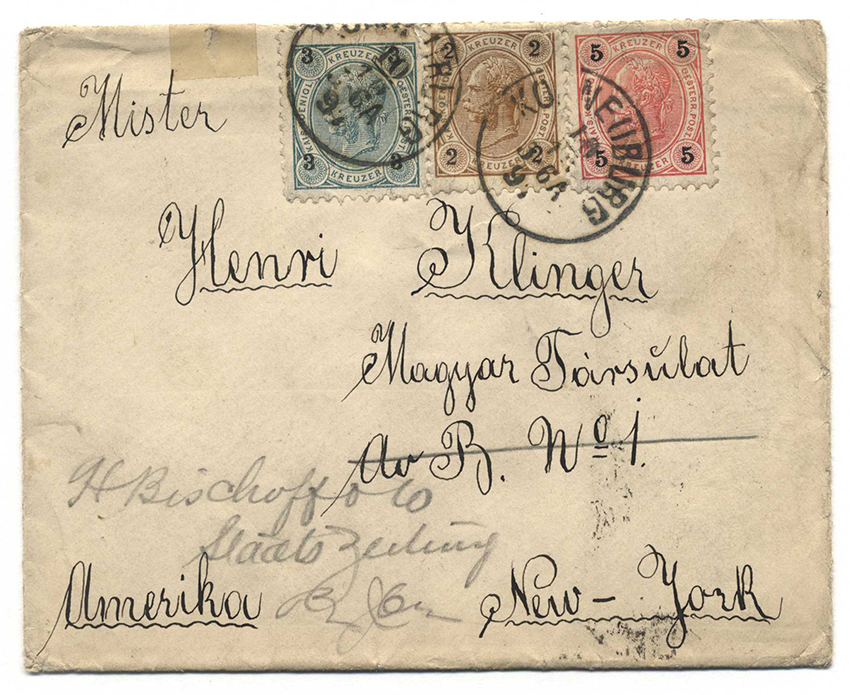 3 KREUZER 3
3 KREUZER 3
2 KREUZER 2
2 KREUZER 2
5 KREUZER 5
5 KREUZER 5
OESTERR. POST.
NEUBURG
Mister
Henri Klinger
Magyar Társulat
Av B. Nº 1.
H Bischoff & Co
Staats Zeitung
Amerika New-York